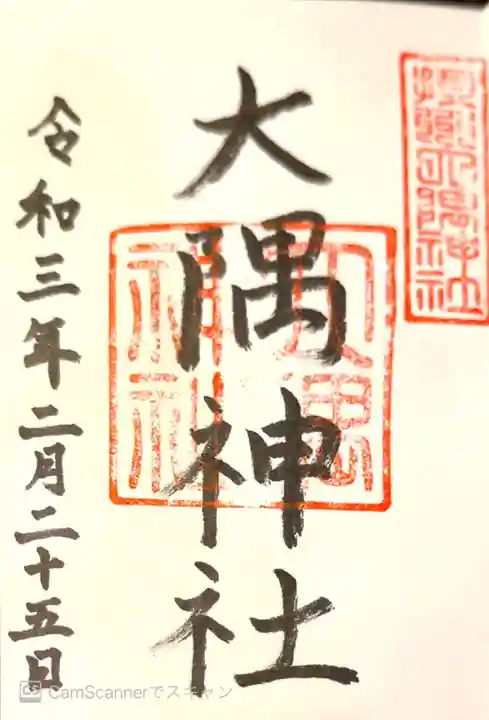 大隅神社
令和三年二月二十五日
大隅神社
CamScannerでスキャン